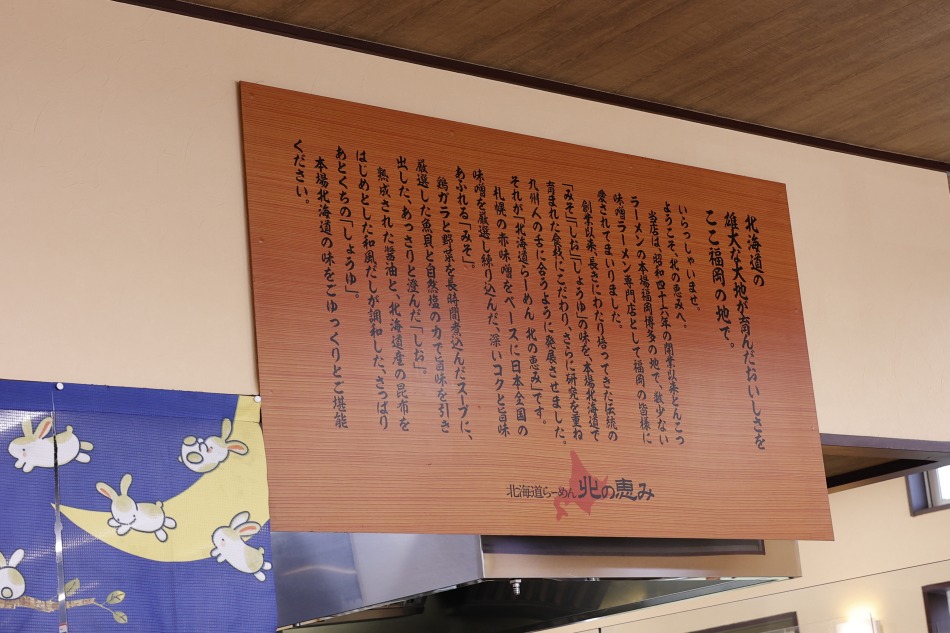 北海道の
雄大な大地が育んだおいしさを
ここ福岡の地で。
いらっしゃいませ、
ようこそ、北の恵みへ。
当店は、昭和四十六年の開業以来とんこつ
ラーメンの本場福岡博多の地で、数少ない
味噌ラーメン専門店として福岡の皆様に
愛されてまいりました。
創業以来、長きにわたり培ってきた伝統の
「みそ」「しお」「しょうゆ」の味を、本場北海道で
育まれた食材にこだわり、さらに研究を重ね
九州人の舌に合うように発展させました。
それが「北海道らーめん 北の恵み」です。
札幌の赤味噌をベースに日本全国の
味噌を厳選し練り込んだ、深いコクと旨味
あふれる「みそ」。
鶏ガラと野菜を長時間煮込んだスープに、
厳選した魚貝と自然塩の力で旨味を引き
出した、あっさりと澄んだ「しお」。
熟成された醤油と、北海道産の昆布を
はじめとした和風だしが調和した、さっぱり
あとくちの「しょうゆ」。
本場北海道の味をごゆっくりとご堪能
ください。
北海道らーめん 北の恵み